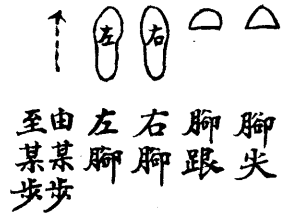 左
右
腳尖
腳跟
右腳
左腳
由某步
至某步